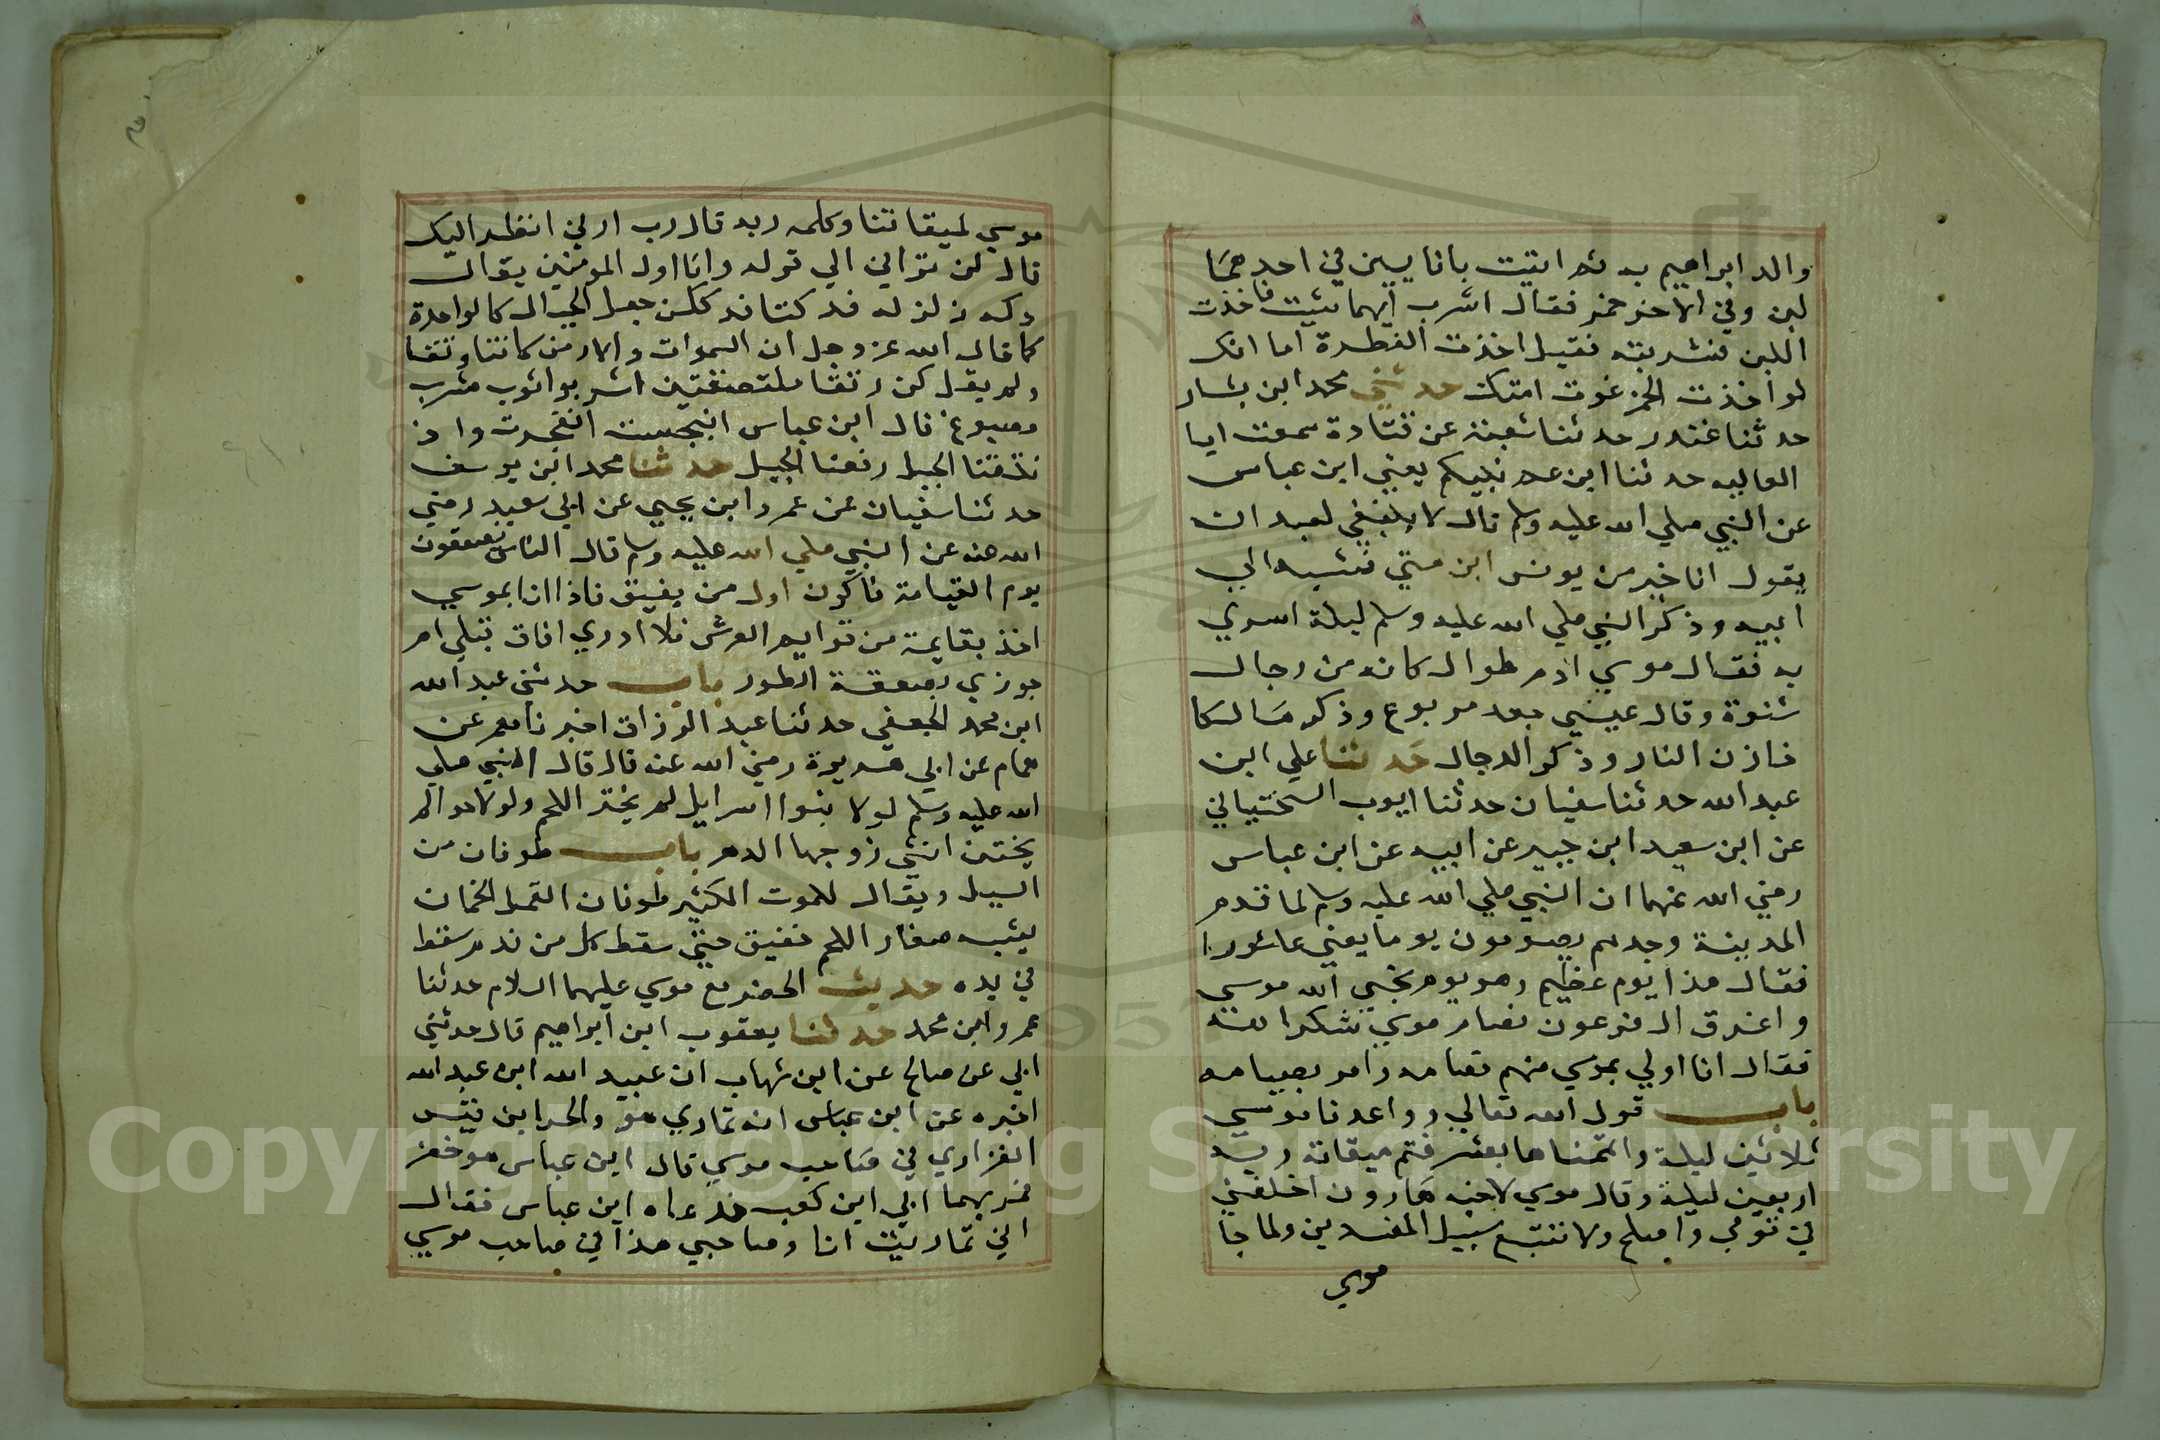 والد ابراهيم به ثم اتيت بانايين في احدهما
لبن وفي الاخر خمر فقال اشرب ايهما شيت فاخذت
اللبن فشربته فقيل اخذت الفطرة اما انك
لو اخذت الخمر غوت امتك حدثني محمد ابن بشار
حدثنا غندر حدثنا شعبة عن قتادة سمعت ابا
العاليه حدثنا ابن عم نبيكم يعني ابن عباس
عن النبي صلي الله عليه وسلم قال لا ينبغي لعبد ان
يقول انا خير من يونس ابن متي فنسبه الي
ابيه وذكر النبي صلي الله عليه وسلم ليلة اسري
به فقال موسي ادم طوال كانه من رجال
شنوة وقال عيسي جعد مربوع وذكر مالكا
خازن النار وذكر الدجال حدثنا علي ابن
عبد الله حدثنا سفيان حدثنا ايوب السختياني
عن ابن سعيد ابن جبير عن ابيه عن ابن عباس
رضي الله عنهما ان النبي صلي الله عليه وسلم لما قدم
المدينة وجدهم يصومون يوما يعني عاشورا
فقال هذا يوم عظيم وهو يوم نجي الله موسي
واغرق ال فرعون فصام موسي شكرا لله
فقال انا اولي بموسي منهم فصامه وامر بصيامه
باب قول الله تعالي وواعدنا موسي
ثلاثين ليلة واتممناها بعشر فتم ميقات ربه
اربعين ليلة وقال موسي لاخيه هارون اخلفني
في قومي واصلح ولا تتبع سبيل المفسدين ولما جا
موسي
موسي لميقاتنا وكلمه ربه قال رب ارني انظر اليك
قال لن تراني الي قوله وانا اول المومنين يقال
دكه زلزله فدكتا فدككن جعل الجبال كالواحدة
كما قال الله عز وجل ان السموات والارض كانتا رتقا
ولم يقل كن رتقا ملتصقتين اشربوا ثوب مشرب
مصبوغ قال ابن عباس انبجست انفجرت واذ
نتقنا الجبل رفعنا الجبل حدثنا محمد ابن يوسف
حدثنا سفيان عن عمرو ابن يحيي عن ابي سعيد رضي
الله عنه عن النبي صلي الله عليه وسلم قال الناس يصعقون
يوم القيامة فاكون اول من يفيق فاذا انا بموسي
اخذ بقايمة من قوايم العرش فلا ادري افاق قبلي ام
جوزي بصعقة الطور باب حدثني عبد الله
ابن محمد الجعفي حدثنا عبد الرزاق اخبرنا معمر عن
همام عن ابي هريرة رضي الله عنه قال قال النبي صلي
الله عليه وسلم لولا بنوا اسرايل لم يخنز اللحم ولولا حوا لم
يختن انثي زوجها الدهر باب طوفان من
السيل ويقال للموت الكثير طوفان القمل الخمان
يشبه صغار اللحم حقيق حتي سقط كل من ندم سقط
في يده حديث الخضر مع موسي عليهما السلام حدثنا
عمرو ابن محمد حدثنا يعقوب ابن ابراهيم قال حدثني
ابي عن صالح عن ابن شهاب ان عبيد الله ابن عبد الله
اخبره عن ابن عباس انه تماري هو والحر ابن قيس
الفزاري في صاحب موسي قال ابن عباس هو خضر
فمر بهما ابي ابن كعب فدعاه ابن عباس فقال
اني تماريت انا وصاحبي هذا في صاحب موسي
Copyright © King Saud University